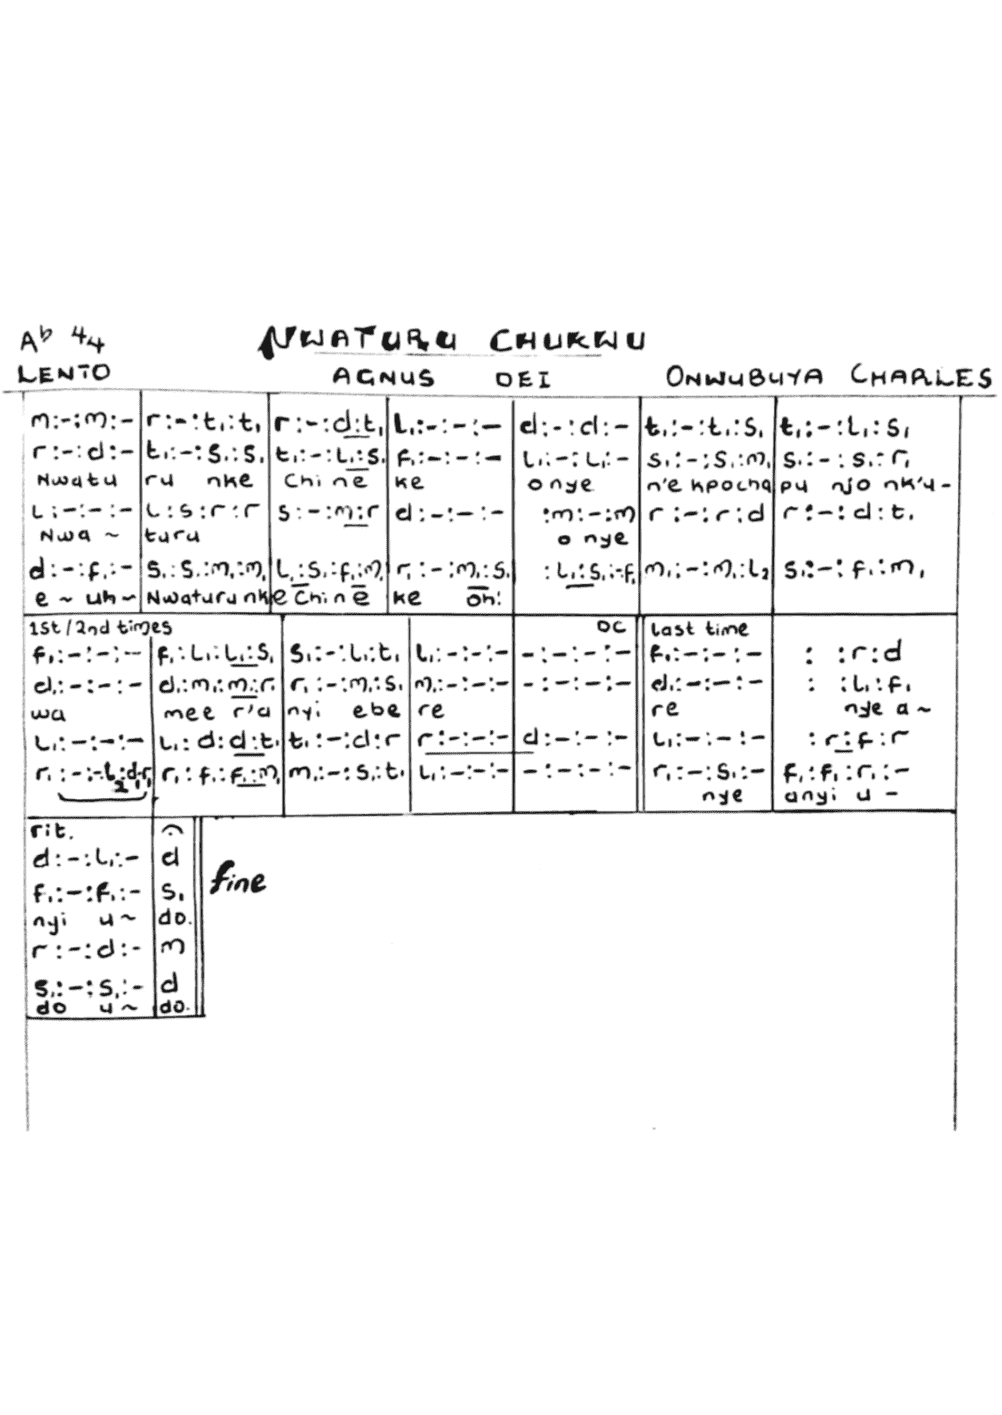 Ab 4/4 NWATURU CHUKWU
LENTO AGNUS DEI ONWUBUYA CHARLES
m:-:m:- | r:-:t,:t, | r:-:d:t, | l,:-:-:- | d:-:d:- | t,:-:t,:s, | t,:-:l,:s,
r:-:d:- | t,:-:s,:s, | t,:-:l,:s, | f,:-:-:- | l,:-:l,:- | s,:-:s,:m, | s,:-:s,:r,
Nwatu ru nke Chi ne ke onye n'e kpocha pu njo nk'u-
l:-:-:- | l:s:r:r | s:-:m:r | d:-:-:- | :m:-:m | r:-:r:d | r:-:d:t,
Nwa ~ turu o nye
d:-:f,:- | s,:s,:m,:m, | l,:s,:f,:m, | r,:-:m,:s, | :l,:s,:-f, | m,:-:m,:l2 | s,:-:f,:m,
e ~ uh ~ Nwaturu nke Chi n e ke oh!
1st/2nd times DC last time
f,:-:-:- | f,:l,:l,:s, | s,:-:l,:t, | l,:-:-:- | -:-:-:- | f,:-:-:- | : :r:d
d,:-:-:- | d,:m,:m,:r, | r,:-:m,:s, | m,:-:-:- | -:-:-:- | d,:-:-:- | : :l,:f,
wa mee r'a nyi ebe re re nye a~
l,:-:-:- | l,:d:d:t, | t,:-:d:r | r:-:-:- | d:-:-:- | l,:-:-:- | :r:f:r
r,:-:-l2:d,r, | r,:f,:f,:m, | m,:-:s,:t, | l,:-:-:- | -:-:-:- | r,:-:s,:- | f,:f,:r,:-
nye anyi u -
rit.
d:-:l,:- | d
fine
f,:-:f,:- | s,
nyi u~ do.
r:-:d:- | m
s,:-:s,:- | d
do u~ do.